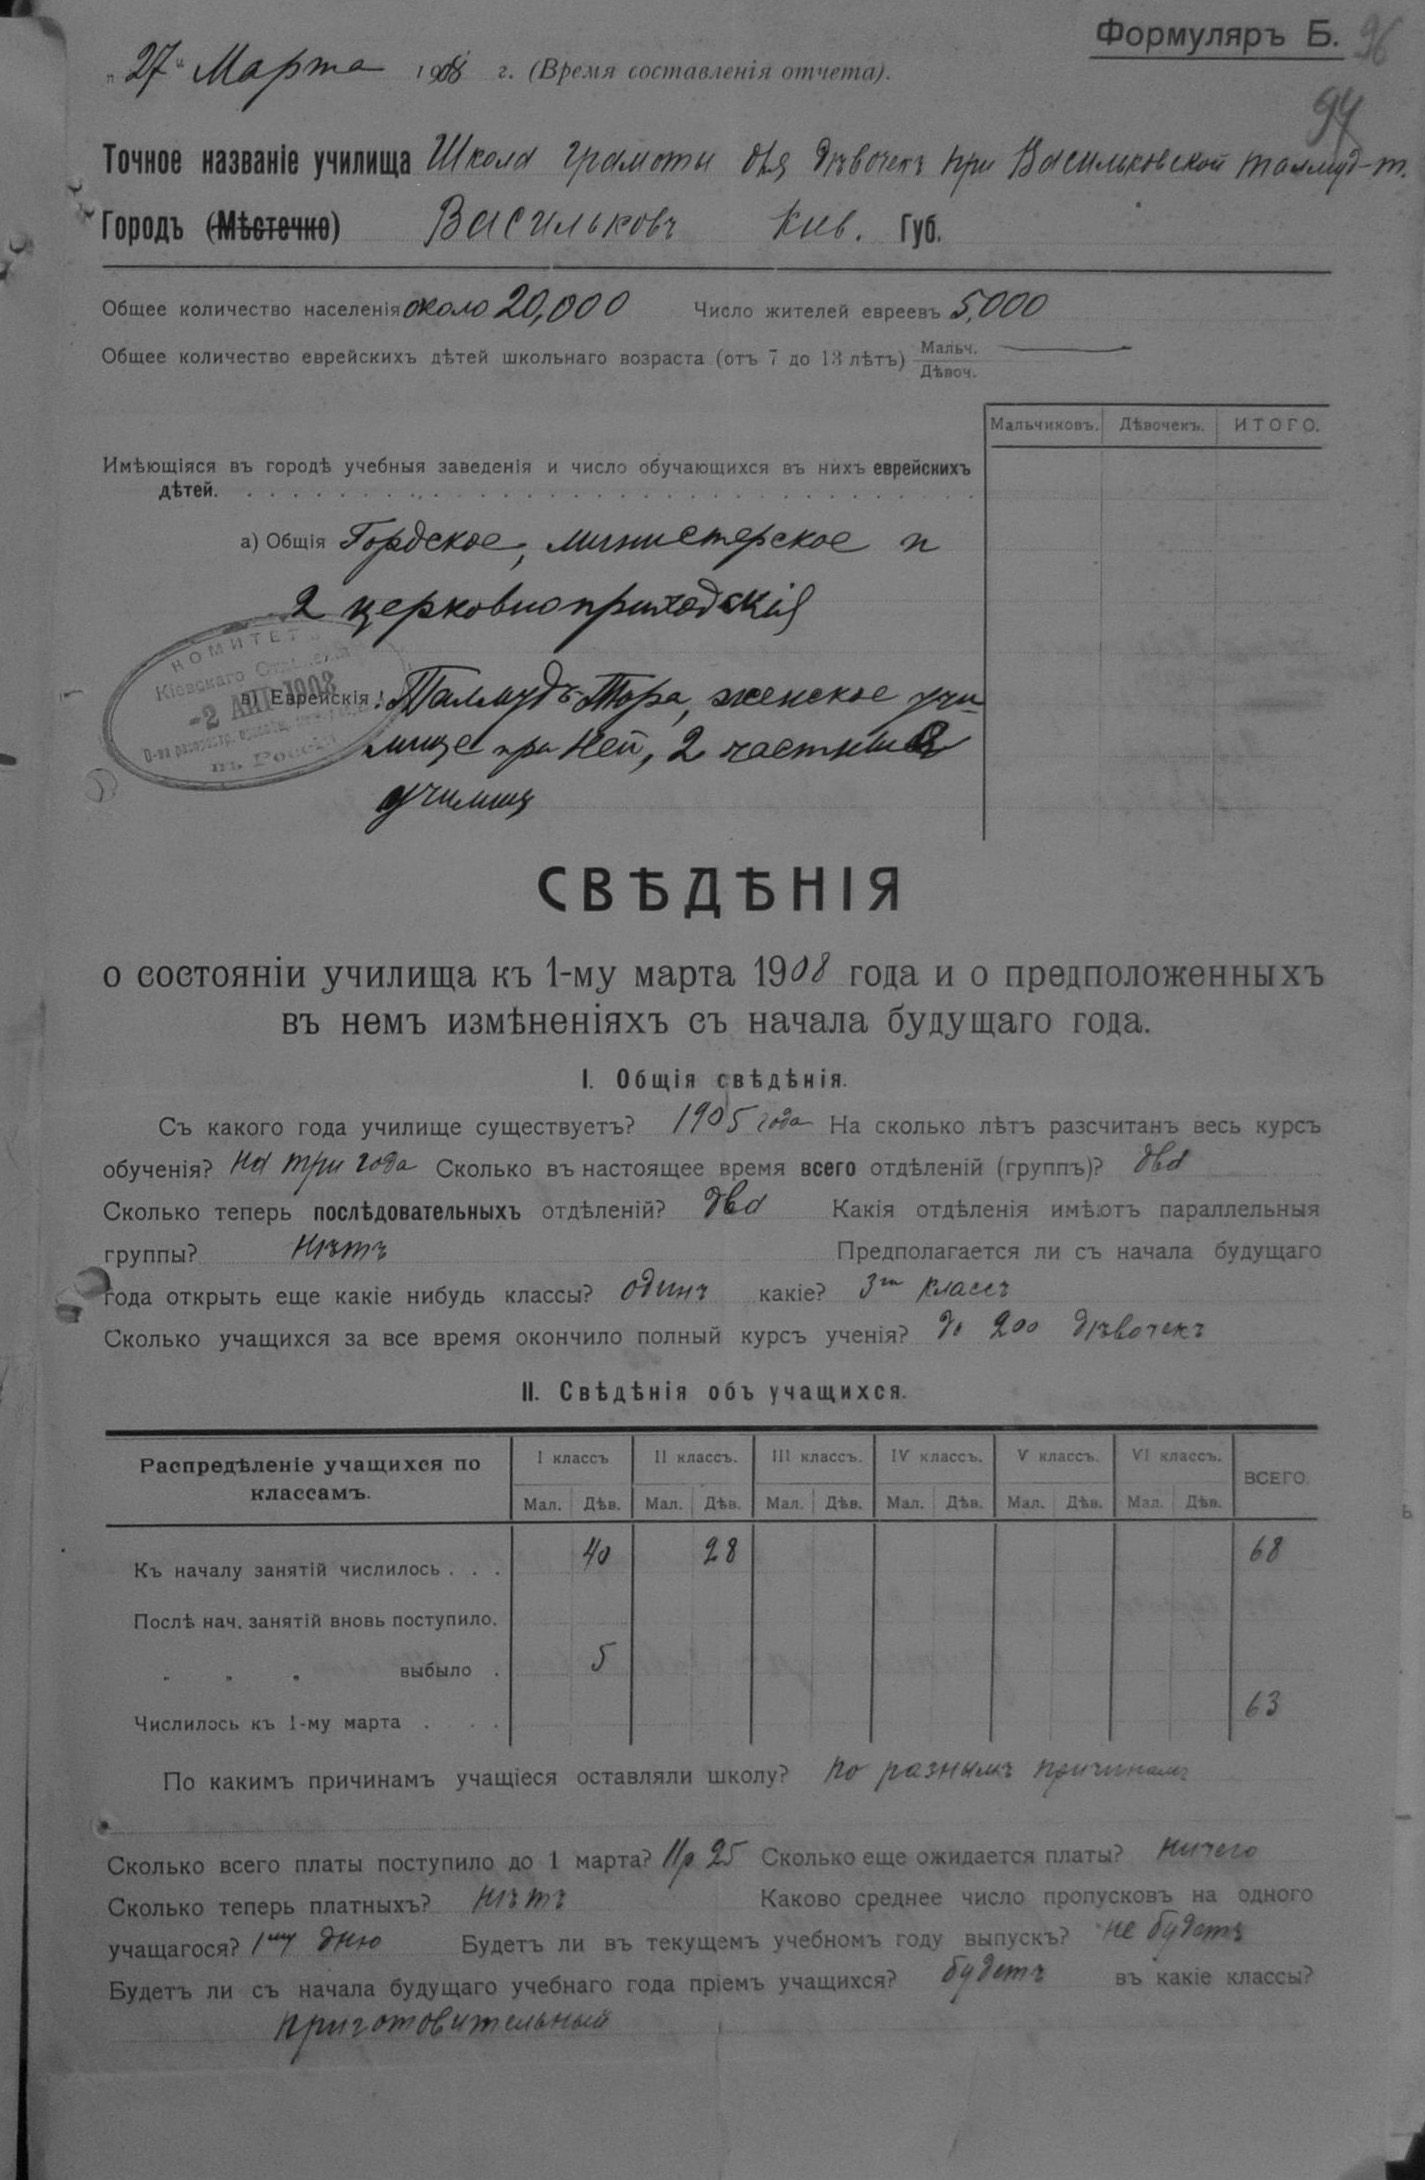 Формуляръ Б. 96
„27“ Марта 1908 г. (Время составленія отчета).
94
Точное названіе училища Школа грамоты для дѣвочекъ при Васильковской талмуд-т.
Городъ (Мѣстечко) Васильковъ Кив. Губ.
Общее количество населенія около 20,000 Число жителей евреевъ 5,000
Общее количество еврейскихъ дѣтей школьнаго возраста (отъ 7 до 13 лѣтъ) Мальч. ——
Дѣвоч.
Мальчиковъ. Дѣвочекъ. ИТОГО.
Имѣющіяся въ городѣ учебныя заведенія и число обучающихся въ нихъ еврейскихъ
дѣтей.
а) Общія Гордское, министерское и
2 церковноприходскія
КОМИТЕТ
Кіевскаго Отдѣленія
-2 АПР 1908
в) Еврейскія: Талмудъ-Тора, женское учи-
О-ва распростр. просвѣщ.
въ Россіи
лище при ней, 2 частныхъ
училищ
СВѢДѢНІЯ
о состояніи училища къ 1-му марта 1908 года и о предположенныхъ
въ немъ измѣненіяхъ съ начала будущаго года.
I. Общія свѣдѣнія.
Съ какого года училище существуетъ? 1905 года На сколько лѣтъ разсчитанъ весь курсъ
обученія? на три года Сколько въ настоящее время всего отдѣленій (группъ)? два
Сколько теперь послѣдовательныхъ отдѣленій? два Какія отдѣленія имѣютъ параллельныя
группы? нѣтъ Предполагается ли съ начала будущаго
года открыть еще какіе нибудь классы? одинъ какіе? 3ій классъ
Сколько учащихся за все время окончило полный курсъ ученія? до 200 дѣвочекъ
II. Свѣдѣнія объ учащихся.
Распредѣленіе учащихся по классамъ. I классъ II классъ. III классъ. IV классъ. V классъ. VI классъ. ВСЕГО.
Мал. Дѣв. Мал. Дѣв. Мал. Дѣв. Мал. Дѣв. Мал. Дѣв. Мал. Дѣв.
Къ началу занятій числилось . . . 40 28 68
Послѣ нач. занятій вновь поступило.
„ „ „ выбыло . 5
Числилось къ 1-му марта . . . . 63
По какимъ причинамъ учащіеся оставляли школу? по разнымъ причинамъ
Сколько всего платы поступило до 1 марта? 11р 25 Сколько еще ожидается платы? ничего
Сколько теперь платныхъ? нѣтъ Каково среднее число пропусковъ на одного
учащагося? 1му дню Будетъ ли въ текущемъ учебномъ году выпускъ? не будетъ
Будетъ ли съ начала будущаго учебнаго года пріемъ учащихся? будетъ въ какіе классы?
приготовительный